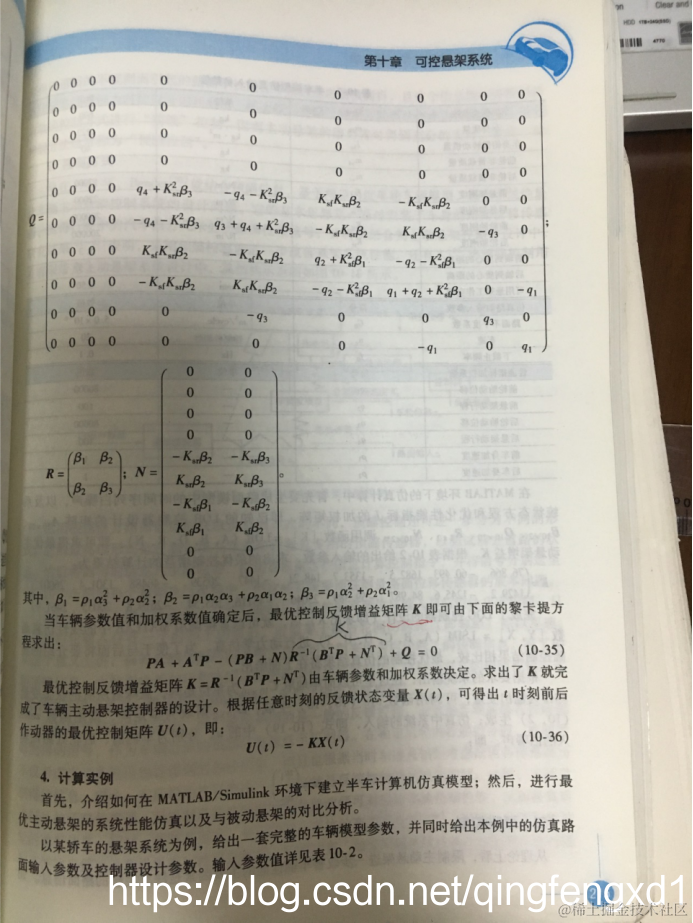 第十章 可控悬架系统
0 0 0 0 0 0 0 0 0 0
0 0 0 0 0 0 0 0 0 0
0 0 0 0 0 0 0 0 0 0
0 0 0 0 0 0 0 0 0 0
0 0 0 0 q₄ + K²ₛᵣβ₃ − q₄ − K²ₛᵣβ₃ K_sf K_sr β₂ − K_sf K_sr β₂ 0 0
Q = 0 0 0 0 − q₄ − K²ₛᵣβ₃ q₃ + q₄ + K²ₛᵣβ₃ − K_sf K_sr β₂ K_sf K_sr β₂ − q₃ 0 ;
0 0 0 0 K_sf K_sr β₂ − K_sf K_sr β₂ q₂ + K²_sf β₁ − q₂ − K²_sf β₁ 0 0
0 0 0 0 − K_sf K_sr β₂ K_sf K_sr β₂ − q₂ − K²_sf β₁ q₁ + q₂ + K²_sf β₁ 0 − q₁
0 0 0 0 0 − q₃ 0 0 q₃ 0
0 0 0 0 0 0 0 − q₁ 0 q₁
0 0
0 0
0 0
0 0
R = β₁ β₂ ; N = − K_sr β₂ − K_sr β₃ 。
β₂ β₃ K_sr β₂ K_sr β₃
− K_sf β₁ − K_sf β₂
K_sf β₁ K_sf β₂
0 0
0 0
其中，β₁ = ρ₁α₃² + ρ₂α₂²；β₂ = ρ₁α₂α₃ + ρ₂α₁α₂；β₃ = ρ₁α₂² + ρ₂α₁²。
当车辆参数值和加权系数值确定后，最优控制反馈增益矩阵 K 即可由下面的黎卡提方
程求出：
K
PA + AᵀP − (PB + N)R⁻¹(BᵀP + Nᵀ) + Q = 0 (10-35)
最优控制反馈增益矩阵 K = R⁻¹(BᵀP + Nᵀ)由车辆参数和加权系数决定。求出了 K 就完
成了车辆主动悬架控制器的设计。根据任意时刻的反馈状态变量 X(t)，可得出 t 时刻前后
作动器的最优控制矩阵 U(t)，即：
U(t) = − KX(t) (10-36)
4. 计算实例
首先，介绍如何在 MATLAB/Simulink 环境下建立半车计算机仿真模型；然后，进行最
优主动悬架的系统性能仿真以及与被动悬架的对比分析。
以某轿车的悬架系统为例，给出一套完整的车辆模型参数，并同时给出本例中的仿真路
面输入参数及控制器设计参数。输入参数值详见表 10-2。
https://blog.csdn.net/qingfengxd1
@稀土掘金技术社区